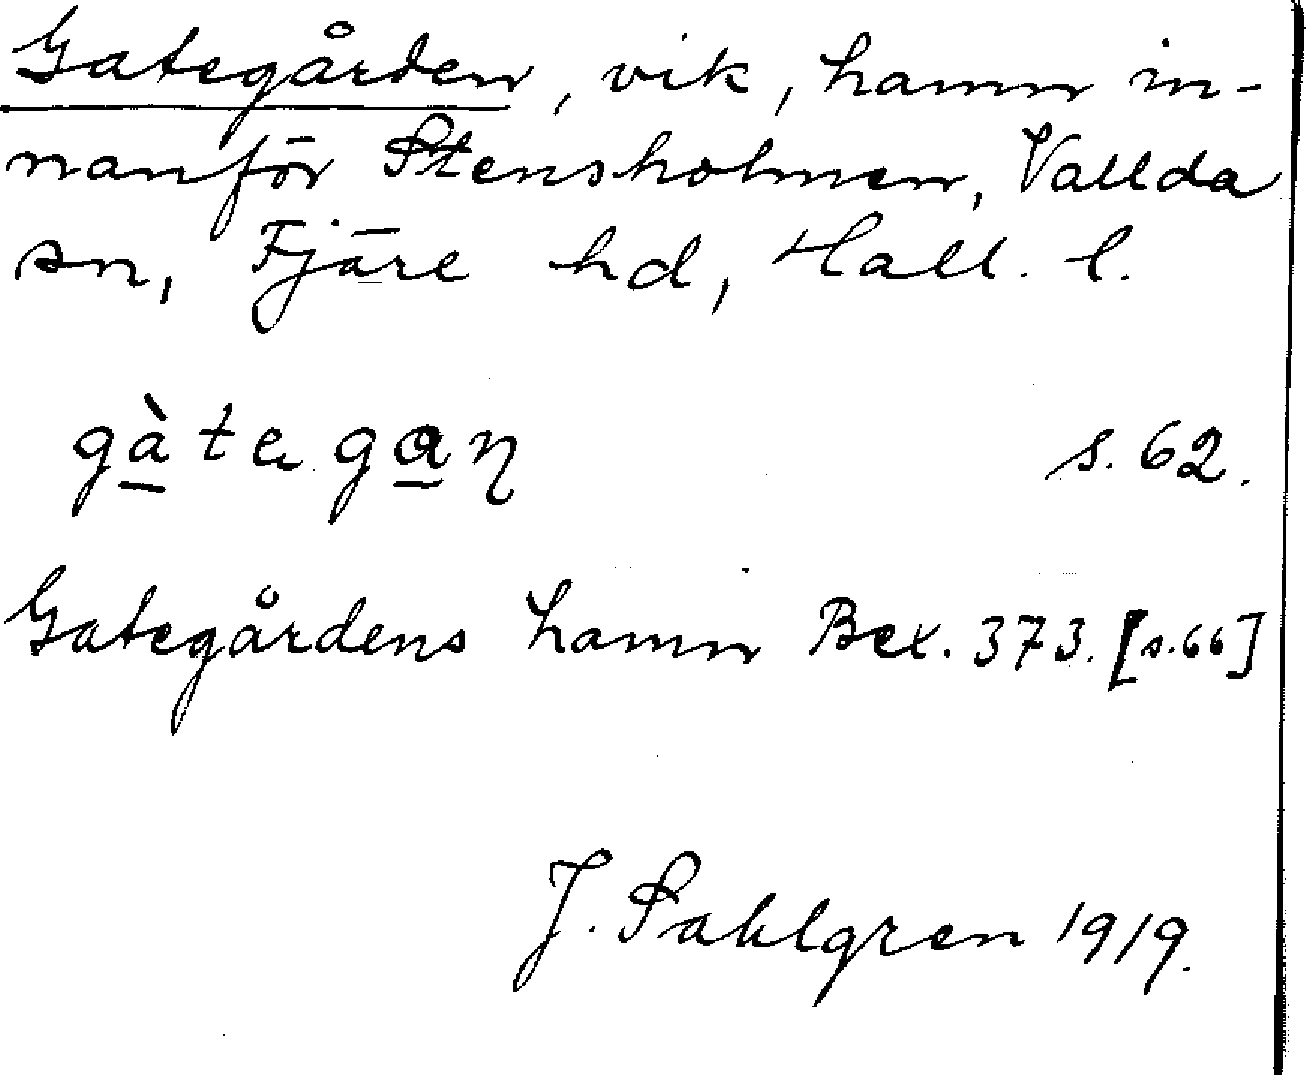 Gategården, vik, hamn in-
nanför Stensholmen, Vallda
sn, Fjäre hd, Hall. l.
gà̱tega̱ɳ s. 62.
Gategårdens hamn Bex. 373. [s. 66]
J. Sahlgren 1919.